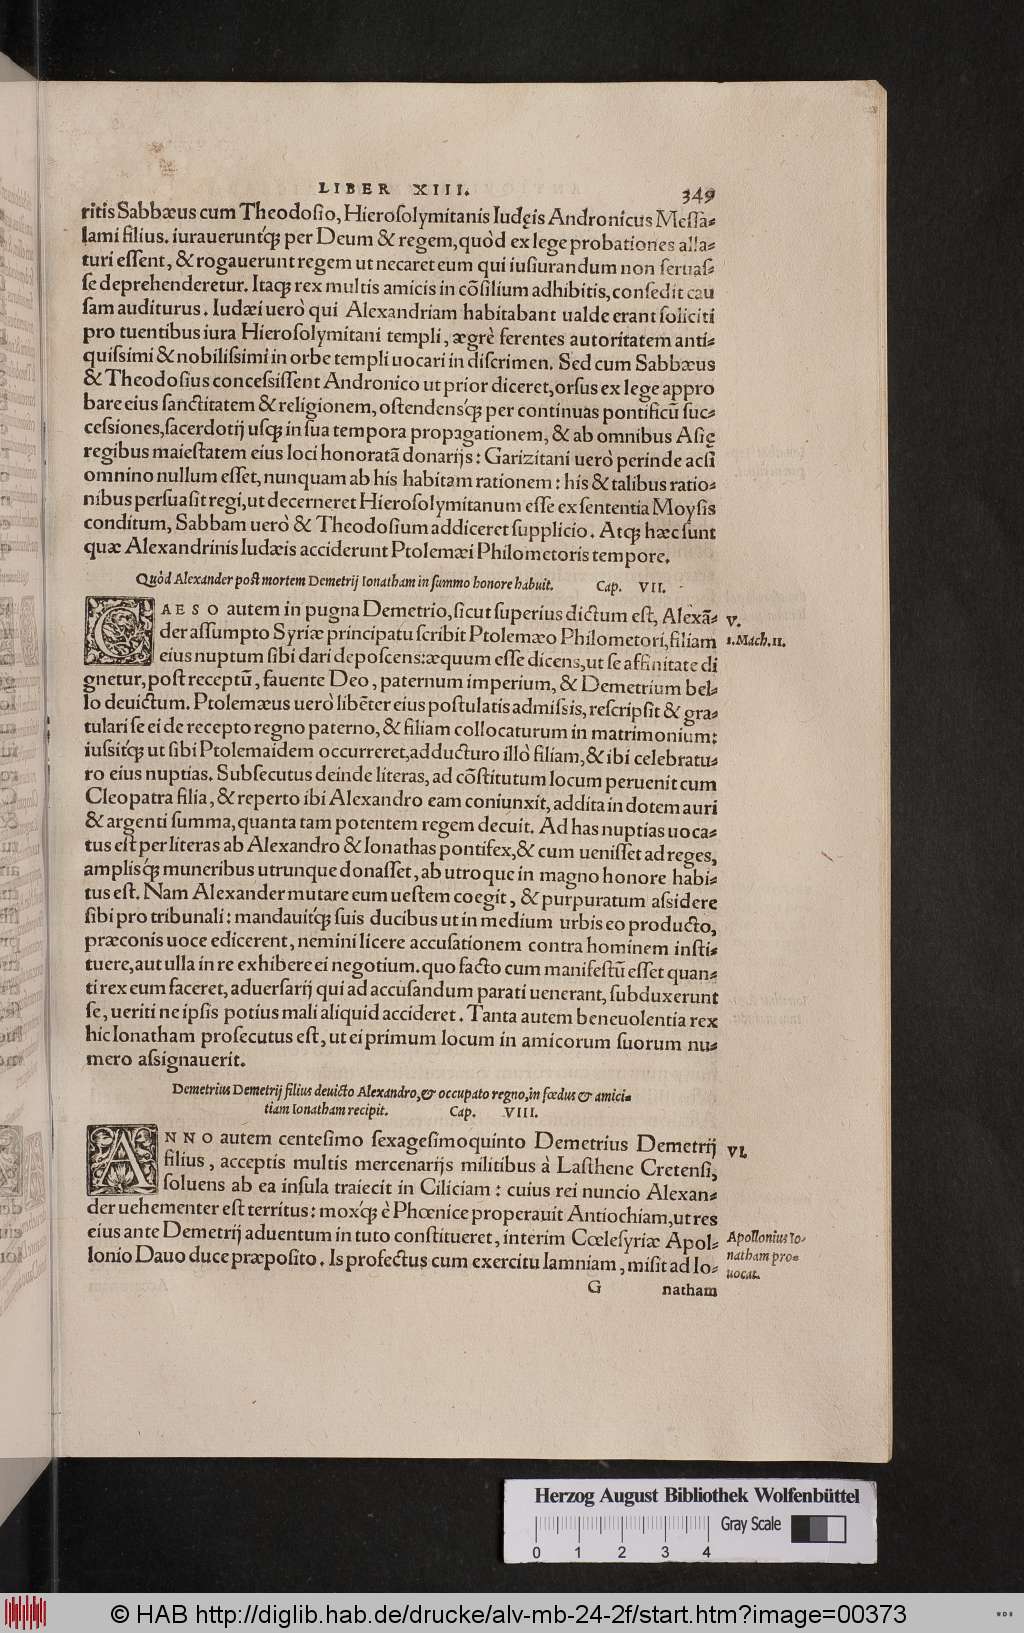 LIBER XIII. 349
ritis Sabbæus cum Theodosio, Hierosolymitanis Iudęis Andronicus Messà-
lami filius. iurauerunt́q; per Deum & regem, quòd ex lege probationes alla-
turi essent, & rogauerunt regem ut necaret eum qui iusiurandum non seruas-
se deprehenderetur. Itaq; rex multis amicis in cõsilium adhibitis, consedit cau
sam auditurus. Iudæi uerò qui Alexandriam habitabant ualde erant soliciti
pro tuentibus iura Hierosolymitani templi, ægrè ferentes autoritatem anti-
quissimi & nobilissimi in orbe templi uocari in discrimen. Sed cum Sabbæus
& Theodosius concessissent Andronico ut prior diceret, orsus ex lege appro
bare eius sanctitatem & religionem, ostendensq́; per continuas pontificũ suc-
cessiones, sacerdotij usq; in sua tempora propagationem, & ab omnibus Asię
regibus maiestatem eius loci honoratã donarijs: Garizitani uerò perinde acsi
omnino nullum esset, nunquam ab his habitam rationem: his & talibus ratio-
nibus persuasit regi, ut decerneret Hierosolymitanum esse ex sententia Moysis
conditum, Sabbam uerò & Theodosium addiceret supplicio. Atq; hæc sunt
quæ Alexandrinis Iudæis acciderunt Ptolemæi Philometoris tempore.
Quòd Alexander post mortem Demetrij Ionatham in summo honore habuit. Cap. VII.
CAESO autem in pugna Demetrio, sicut superius dictum est, Alexã-
der assumpto Syriæ principatu scribit Ptolemæo Philometori, filiam
eius nuptum sibi dari deposcens: æquum esse dicens, ut se affinitate di
gnetur, post receptũ, fauente Deo, paternum imperium, & Demetrium bel-
lo deuictum. Ptolemæus uerò libẽter eius postulatis admissis, rescripsit & gra-
tulari se ei de recepto regno paterno, & filiam collocaturum in matrimonium:
iussitq́; ut sibi Ptolemaidem occurreret, adducturo illò filiam, & ibi celebratu-
ro eius nuptias. Subsecutus deinde literas, ad cõstitutum locum peruenit cum
Cleopatra filia, & reperto ibi Alexandro eam coniunxit, addita in dotem auri
& argenti summa, quanta tam potentem regem decuit. Ad has nuptias uoca-
tus est per literas ab Alexandro & Ionathas pontifex, & cum uenisset ad reges,
amplisq́; muneribus utrunque donasset, ab utroque in magno honore habi-
tus est. Nam Alexander mutare eum uestem coegit, & purpuratum assidere
sibi pro tribunali: mandauitq́; suis ducibus ut in medium urbis eo producto,
præconis uoce edicerent, nemini licere accusationem contra hominem insti-
tuere, aut ulla in re exhibere ei negotium. quo facto cum manifestũ esset quan-
ti rex eum faceret, aduersarij qui ad accusandum parati uenerant, subduxerunt
se, ueriti ne ipsis potius mali aliquid accideret. Tanta autem beneuolentia rex
hic Ionatham prosecutus est, ut ei primum locum in amicorum suorum nu-
mero assignauerit.
V.
1. Mach. 11.
Demetrius Demetrij filius deuicto Alexandro, & occupato regno, in fœdus & amici-
tiam Ionatham recipit. Cap. VIII.
ANNO autem centesimo sexagesimoquinto Demetrius Demetrij
filius, acceptis multis mercenarijs militibus à Lasthene Cretensi,
soluens ab ea insula traiecit in Ciliciam: cuius rei nuncio Alexan-
der uehementer est territus: moxq́; è Phœnice properauit Antiochiam, ut res
eius ante Demetrij aduentum in tuto constitueret, interim Cœlesyriæ Apol-
lonio Dauo duce præposito. Is profectus cum exercitu Iamniam, misit ad Io-
VI.
Apollonius Io-
natham pro-
uocat.
G natham
Herzog August Bibliothek Wolfenbüttel
Gray Scale
0 1 2 3 4
© HAB http://diglib.hab.de/drucke/alv-mb-24-2f/start.htm?image=00373